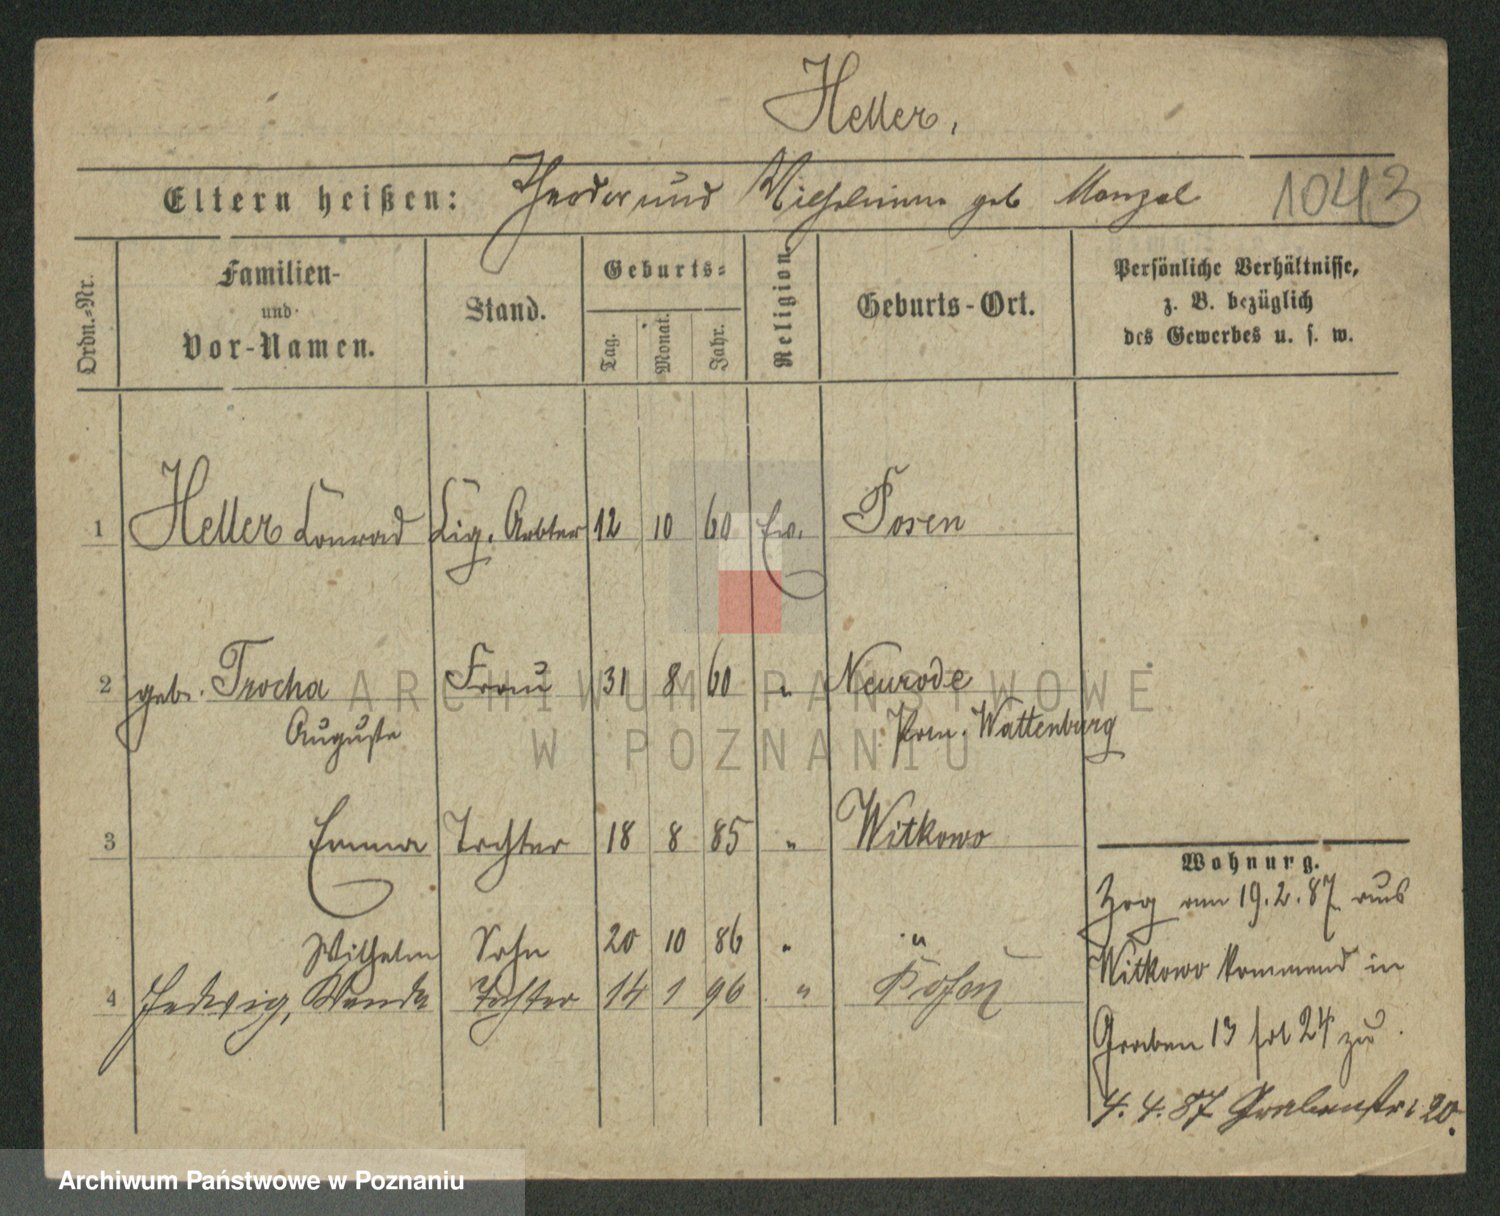 Heller,
Eltern heißen: Theodor und Wilhelmine geb Menzel 1043
Ordn.-Nr. Familien- und Vor-Namen. Stand. Geburts- Tag. Monat. Jahr. Religion. Geburts-Ort. Persönliche Verhältnisse, z. B. bezüglich des Gewerbes u. s. w.
1 Heller Konrad Cig. Arbter 12 10 60 Ev. Posen
2 geb. Trocha Frau 31 8 60 " Neurode
Auguste Prov. Wattenburg
3 Emma Tochter 18 8 85 " Witkowo
Wilhelm Sohn 20 10 86 " "
4 Hedwig, Wanda Tochter 14 1 96 " Posen
Wohnung.
Zog am 19.2.87 aus
Witkowo kommend in
Graben 13 24 zu.
4. 4. 87 Grabenstr. 20.
ARCHIWUM PAŃSTWOWE
W POZNANIU
Archiwum Państwowe w Poznaniu